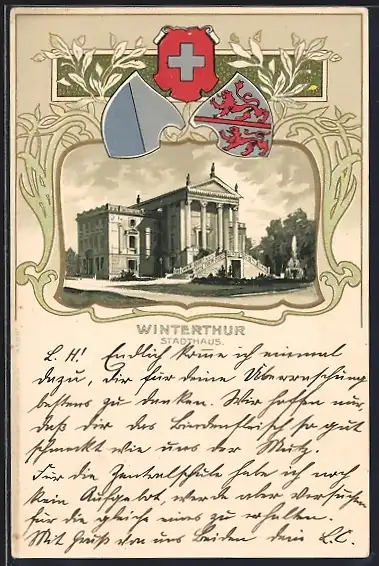 WINTERTHUR
STADTHAUS.
L. H! Endlich komme ich einmal
dazu, dir für deine Überraschung
bestens zu danken. Wir hoffen nur,
daß dir das Bindenfleisch so gut
schmeckt wie uns der Mutz.
Für die Zentralschule habe ich noch
kein Aufgebot, werde aber versuchen
für die gleiche eines zu erhalten.
Mit Gruß von uns Beiden dein L.C.